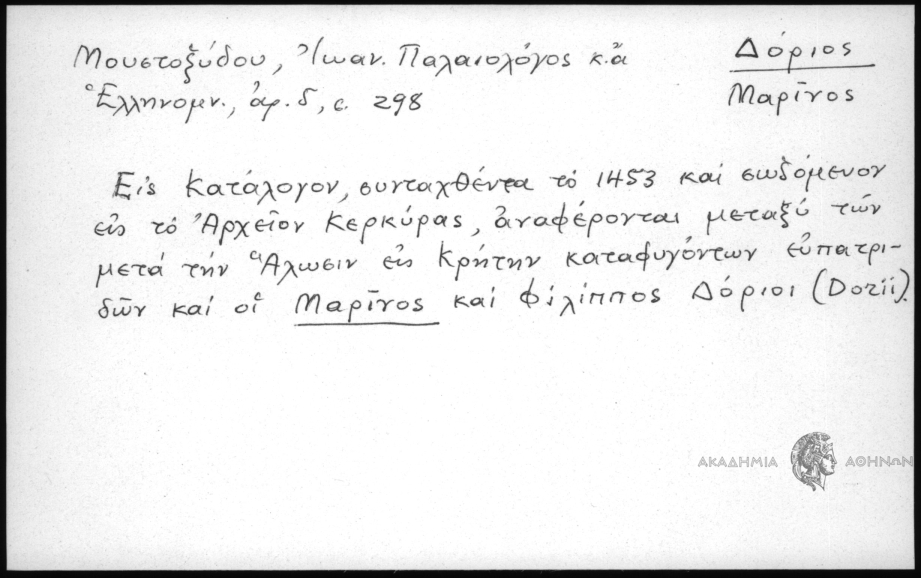 Μουστοξύδου, Ἰωαν. Παλαιολόγος κ.ἄ
Ἑλληνομν., ἀρ. δ, σ. 298
Δόριος
Μαρῖνος
Εἰς κατάλογον, συνταχθέντα τό 1453 καί σωζόμενον
εἰς τό Ἀρχεῖον Κερκύρας, ἀναφέρονται μεταξύ τῶν
μετά τήν Ἅλωσιν εἰς Κρήτην καταφυγόντων εὐπατρι-
δῶν καί οἱ Μαρῖνος καί Φίλιππος Δόριοι (Dorii).
ΑΚΑΔΗΜΙΑ ΑΘΗΝΩΝ